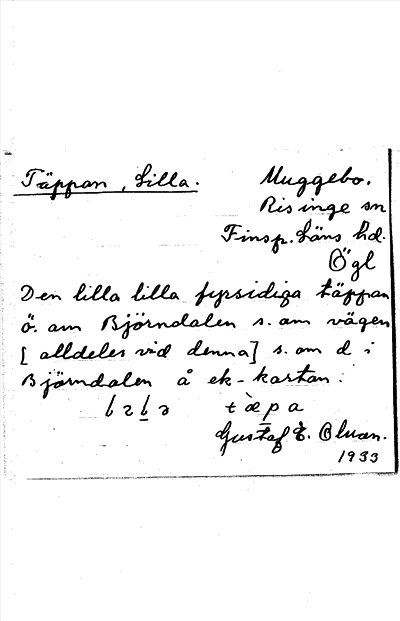 Täppan, Lilla.
Muggebo.
Risinge sn
Finsp. Läns hd.
Ögl
Den lilla lilla fyrsidiga täppan
ö. om Björndalen s. om vägen
[alldeles vid denna] s. om d i
Björndalen å ek-kartan.
Gustaf E.
1933